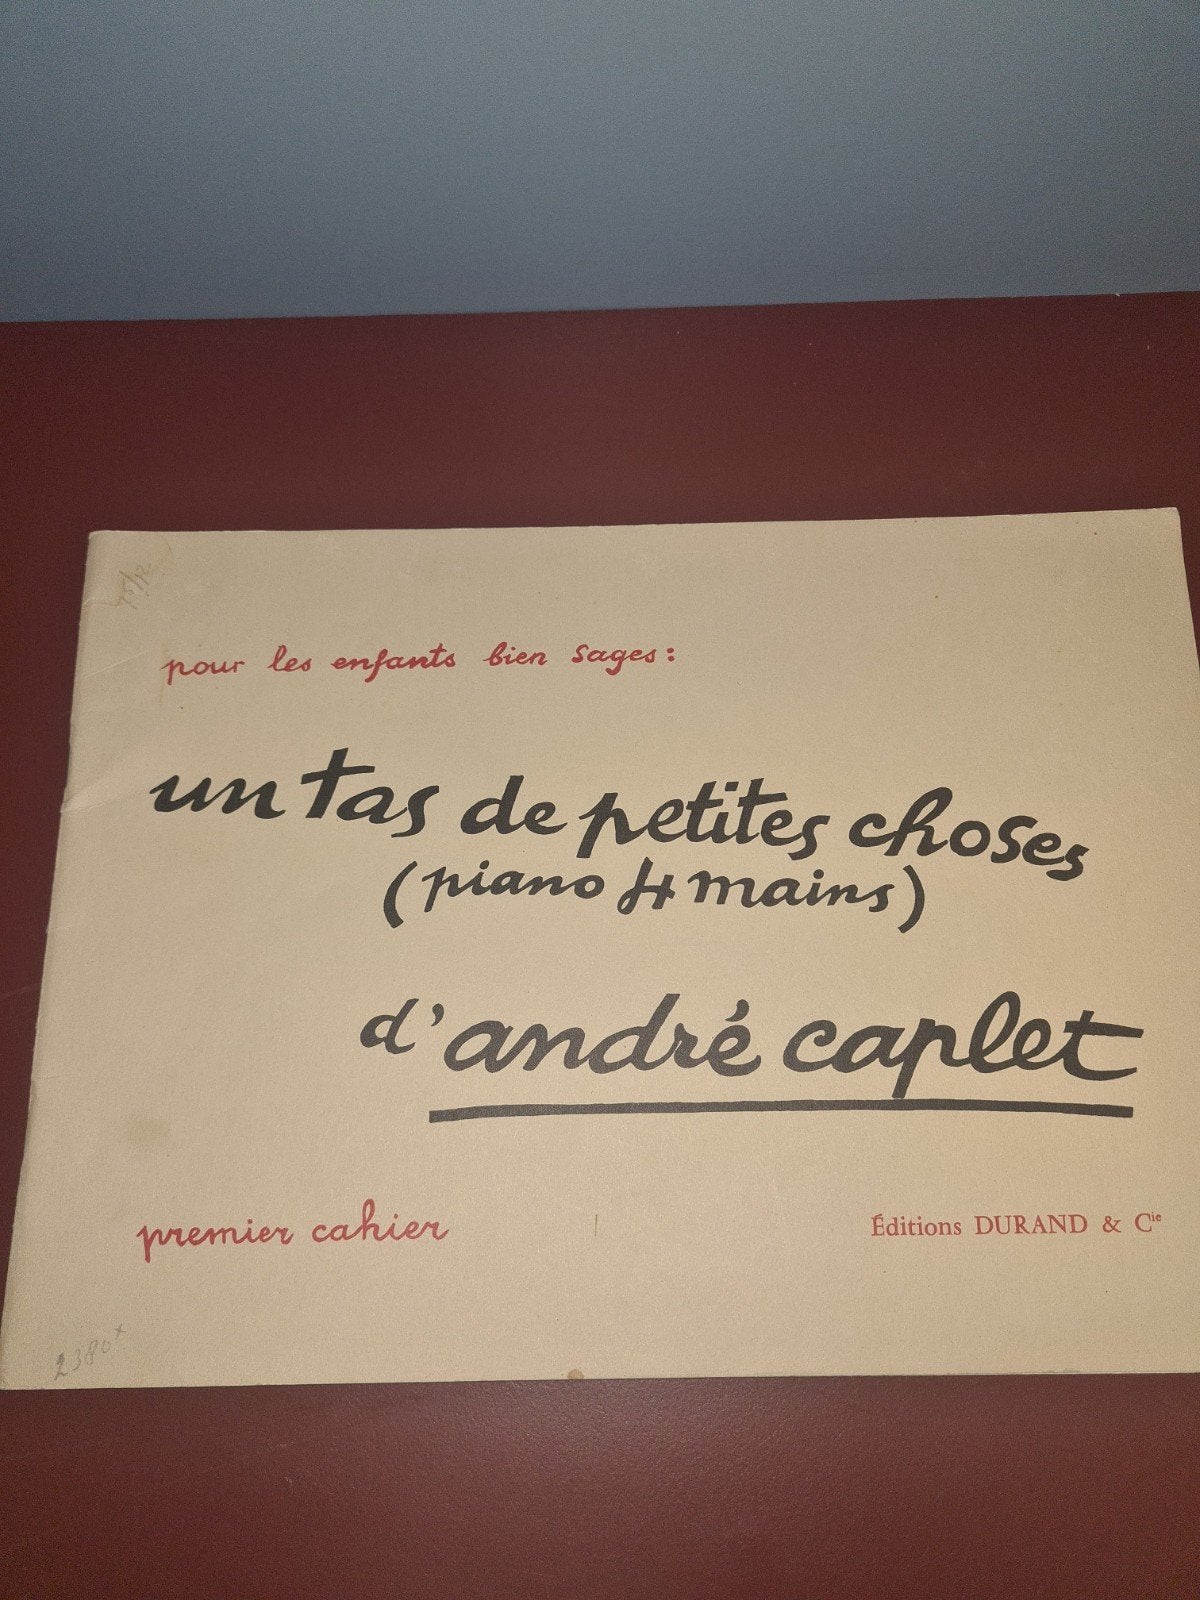 pour les enfants bien sages:
un tas de petites choses
(piano 4 mains)
d'andré caplet
premier cahier
Éditions DURAND & Cie
2380x